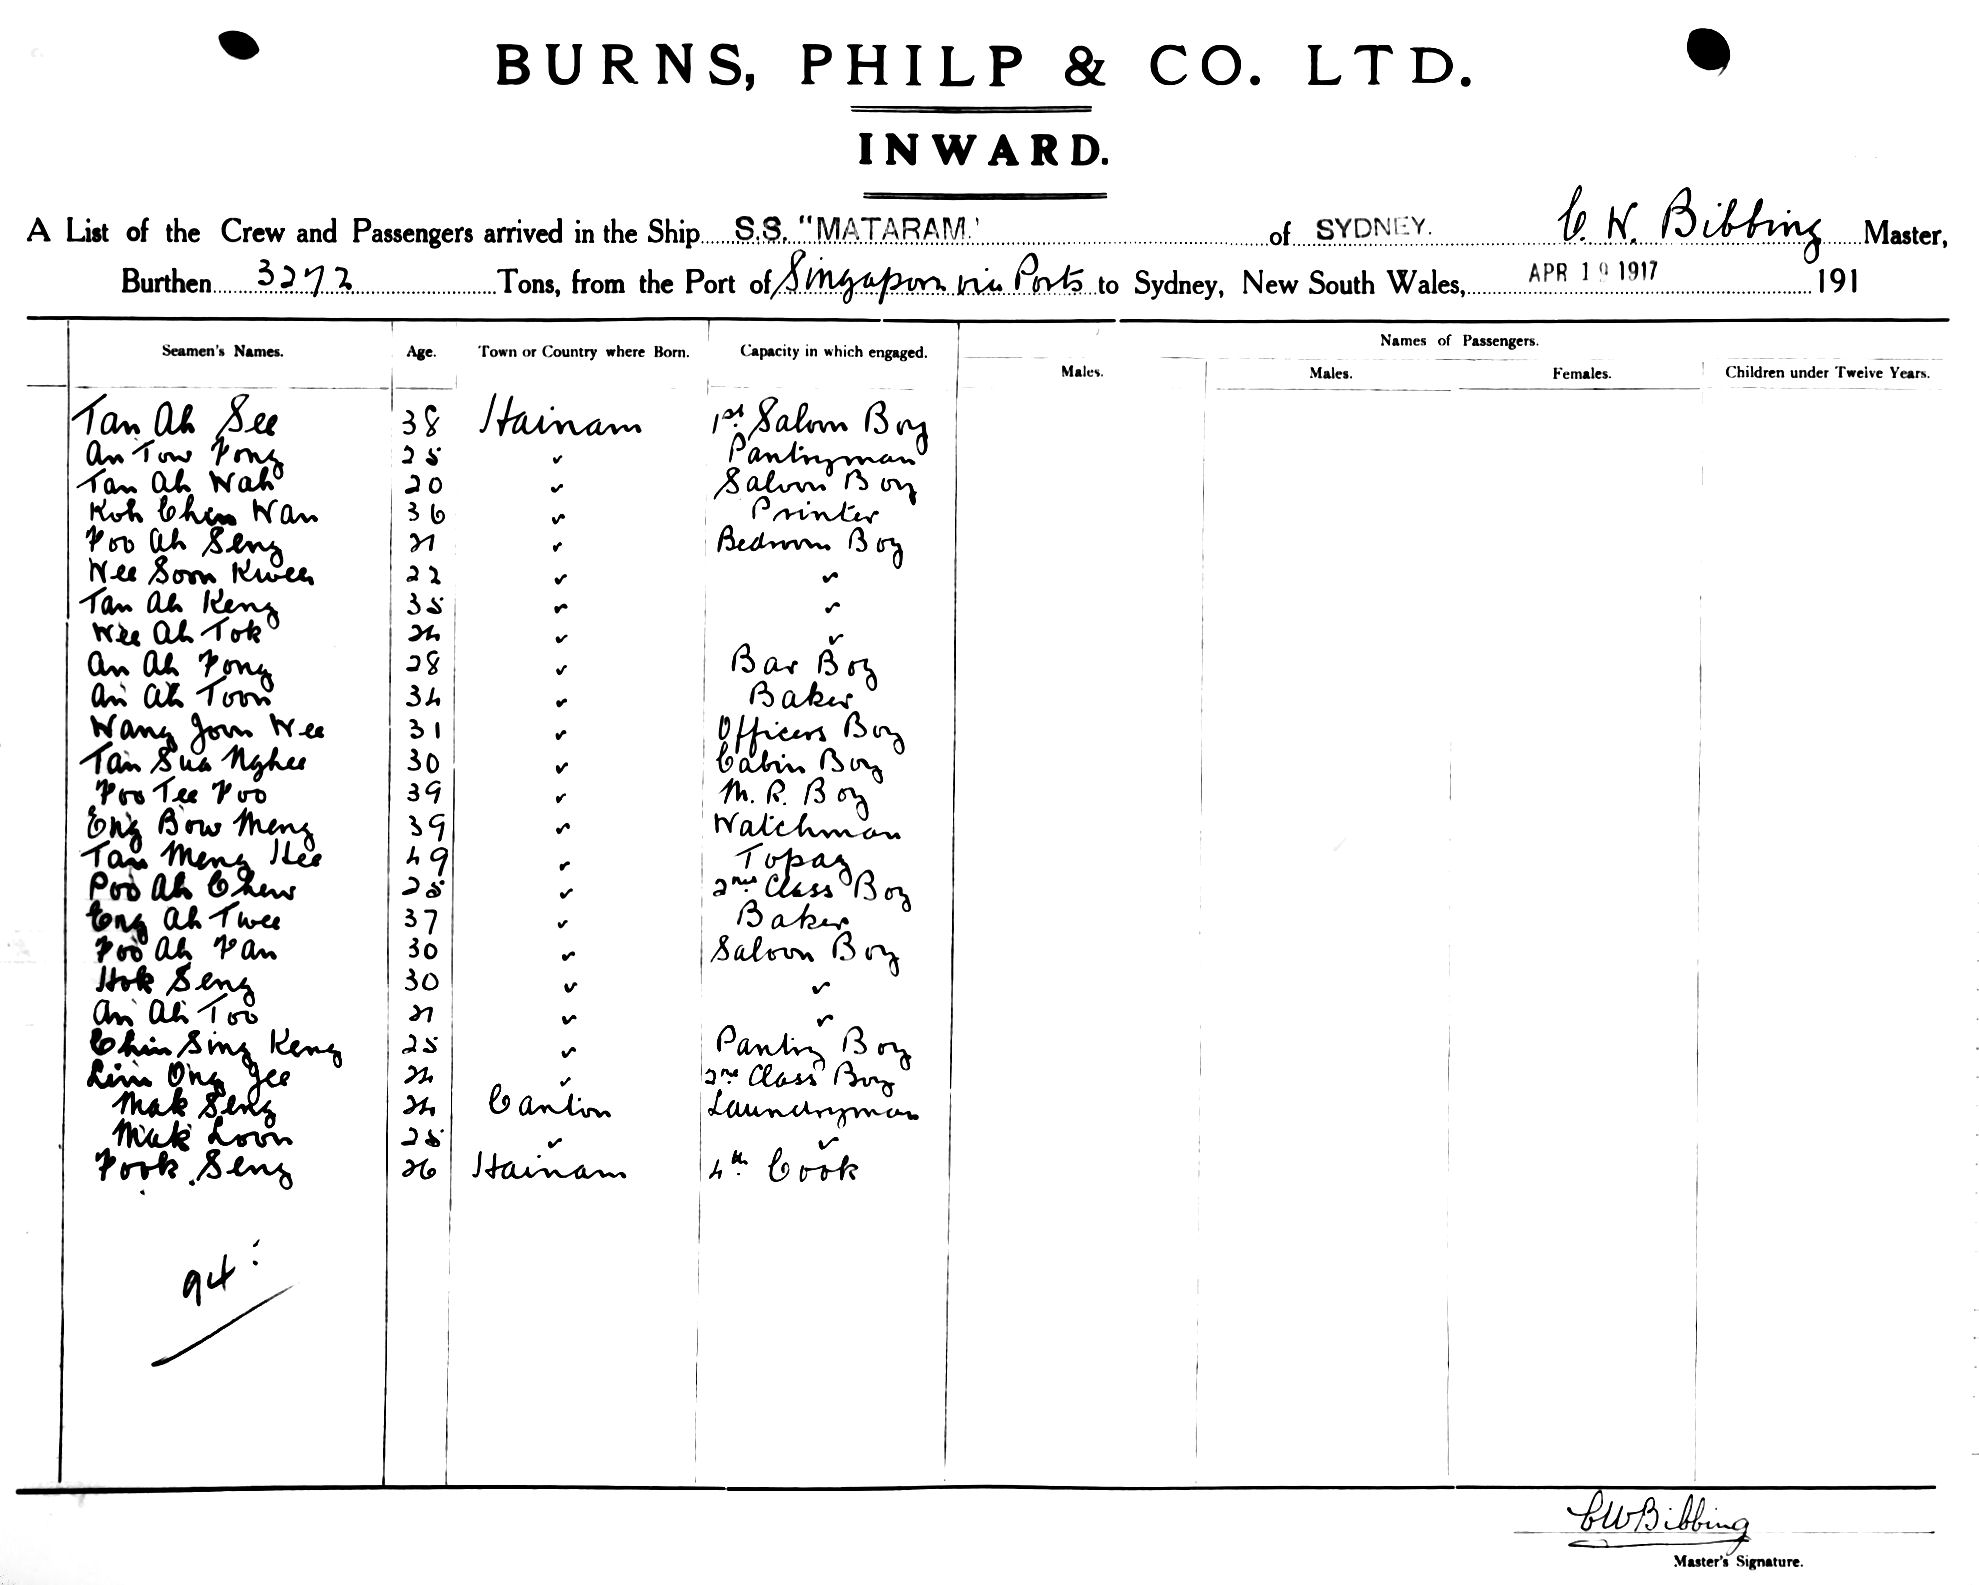 BURNS, PHILP & CO. LTD.
INWARD.
A List of the Crew and Passengers arrived in the Ship S.S. "MATARAM." of SYDNEY. C. W. Bibbing Master,
Burthen 3272 Tons, from the Port of Singapore via Ports to Sydney, New South Wales, APR 19 1917 191
Seamen's Names. Age. Town or Country where Born. Capacity in which engaged. Names of Passengers.
Males. Males. Females. Children under Twelve Years.
Tan Ah See 38 Hainam 1st Saloon Boy
An Tow Fong 25 " Pantryman
Tan Ah Wah 20 " Saloon Boy
Koh Chen Wan 36 " Printer
Foo Ah Seng 21 " Bedroom Boy
Wee Soon Kwee 22 " "
Tan Ah Keng 35 " "
Wee Ah Tok 24 " "
An Ah Fong 28 " Bar Boy
An Ah Toon 34 " Baker
Wang Joon Wee 31 " Officers Boy
Tan Sua Nghee 30 " Cabin Boy
Foo Tee Foo 39 " M. R. Boy
Eng Bow Meng 39 " Watchman
Tan Meng Hee 49 " Topaz
Poo Ah Chew 25 " 2nd Class Boy
Eng Ah Twee 37 " Baker
Foo Ah Fan 30 " Saloon Boy
Hok Seng 30 " "
An Ah Too 21 " "
Chin Sing Keng 25 " Pantry Boy
Lim Ong Jee 24 " 2nd Class Boy
Mak Seng 24 Canton Laundryman
Mak Loon 25 " "
Fook Seng 26 Hainam 4th Cook
94
CWBibbing
Master's Signature.